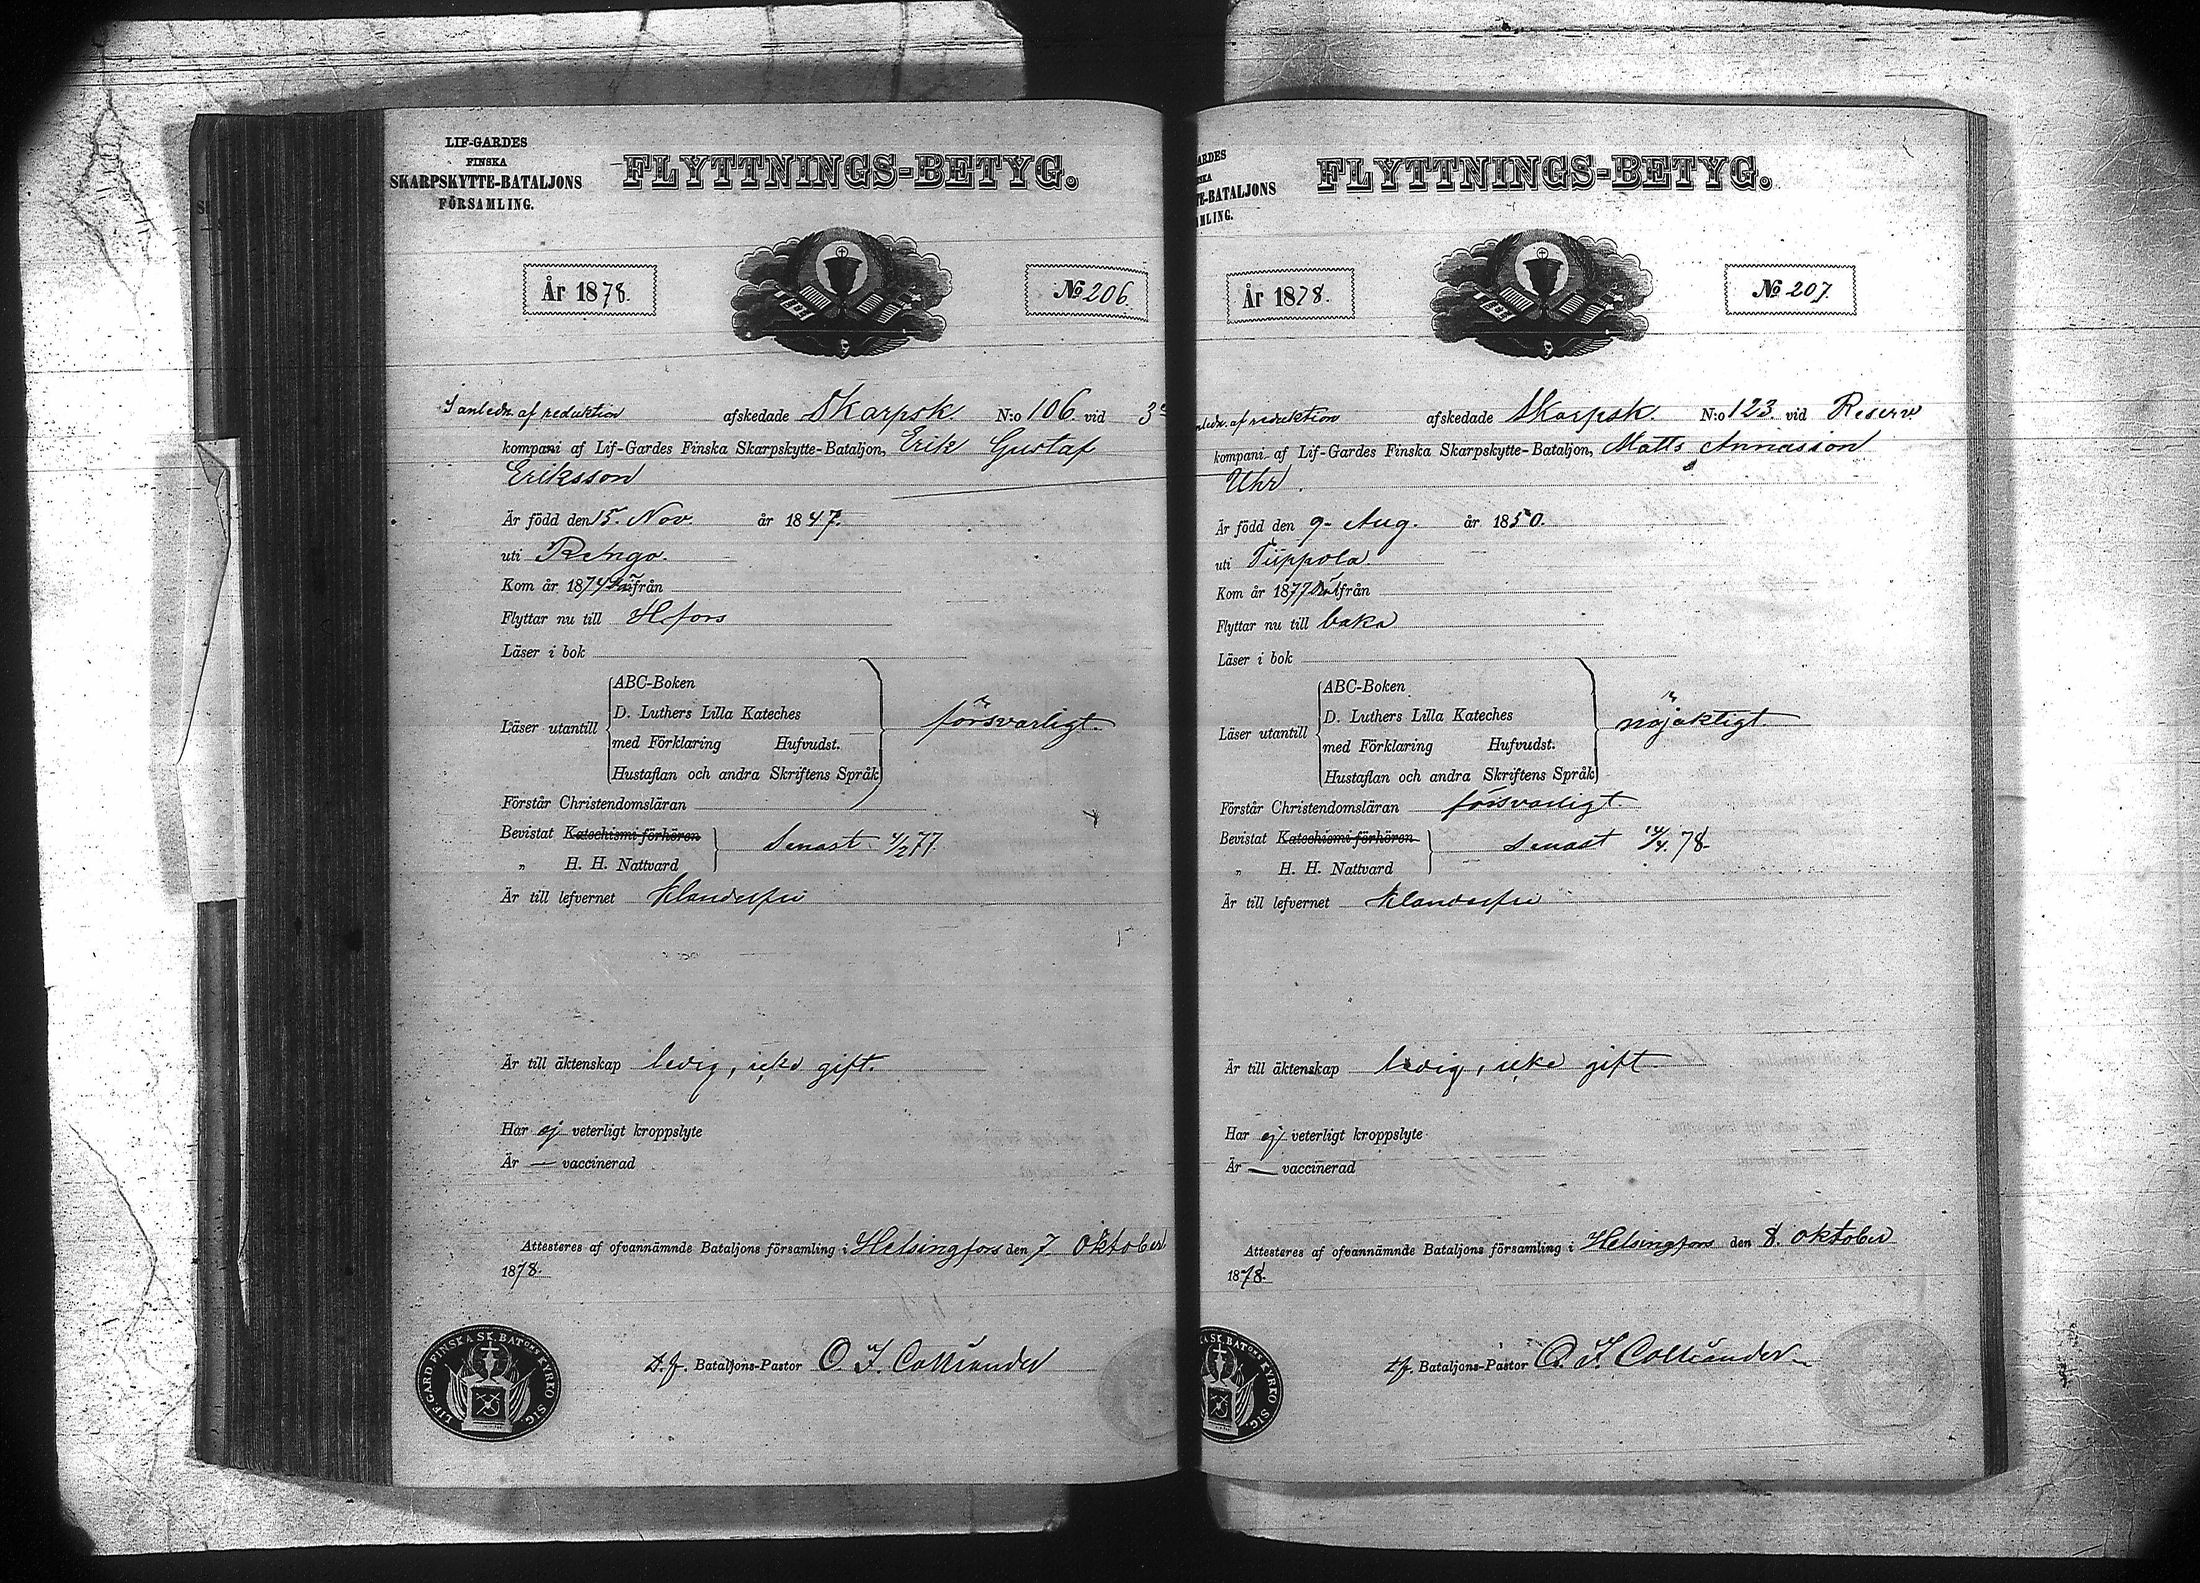 LIF-GARDES
FINSKA
SKARPSKYTTE-BATALJONS
FÖRSAMLING.
FLYTTNINGS-BETYG.
År 1878.
No 206.
I anledn. af reduktion afskedade Skarpsk. N:o 106. vid 3e
kompani af Lif-Gardes Finska Skarpskytte-Bataljon, Erik Gustaf
Eriksson
Är född den 15. Nov. år 1847.
uti Rengo.
Kom år 1874 ifrån
Flyttar nu till H.fors
Läser i bok
Läser utantill
ABC-Boken
D. Luthers Lilla Kateches
med Förklaring Hufvudst.
Hustaflan och andra Skriftens Språk
försvarligt.
Förstår Christendomsläran
Bevistat Katechismi-förhören
„ H. H. Nattvard
Senast 4/2 77.
Är till lefvernet klanderfri
Är till äktenskap ledig, icke gift.
Har ej veterligt kroppslyte
Är — vaccinerad
Attesteres af ofvannämnde Bataljons församling i Helsingfors den 7. Oktober
1878.
LIF.GARD.FINSKA SK.BATONS KYRKO SIG.
t.f. Bataljons-Pastor O. I. Colliander
ARDES
SKA
TE-BATALJONS
MLING.
FLYTTNINGS-BETYG.
År 1878.
No 207.
anledn. af reduktion afskedade Skarpsk. N:o 123. vid Reserv
kompani af Lif-Gardes Finska Skarpskytte-Bataljon, Matts Annasson
Uhr.
Är född den 9. Aug. år 1850.
uti Tiippola.
Kom år 1877 ifrån
Flyttar nu till baka
Läser i bok
Läser utantill
ABC-Boken
D. Luthers Lilla Kateches
med Förklaring Hufvudst.
Hustaflan och andra Skriftens Språk
nöjaktigt.
Förstår Christendomsläran försvarligt.
Bevistat Katechismi-förhören
„ H. H. Nattvard
Senast 14/4. 78.
Är till lefvernet klanderfri
Är till äktenskap ledig, icke gift
Har ej veterligt kroppslyte
Är — vaccinerad
Attesteres af ofvannämnde Bataljons församling i Helsingfors den 8. Oktober
1878.
KA SK.BATONS KYRKO SIG.
t.f. Bataljons-Pastor O. I. Colliander